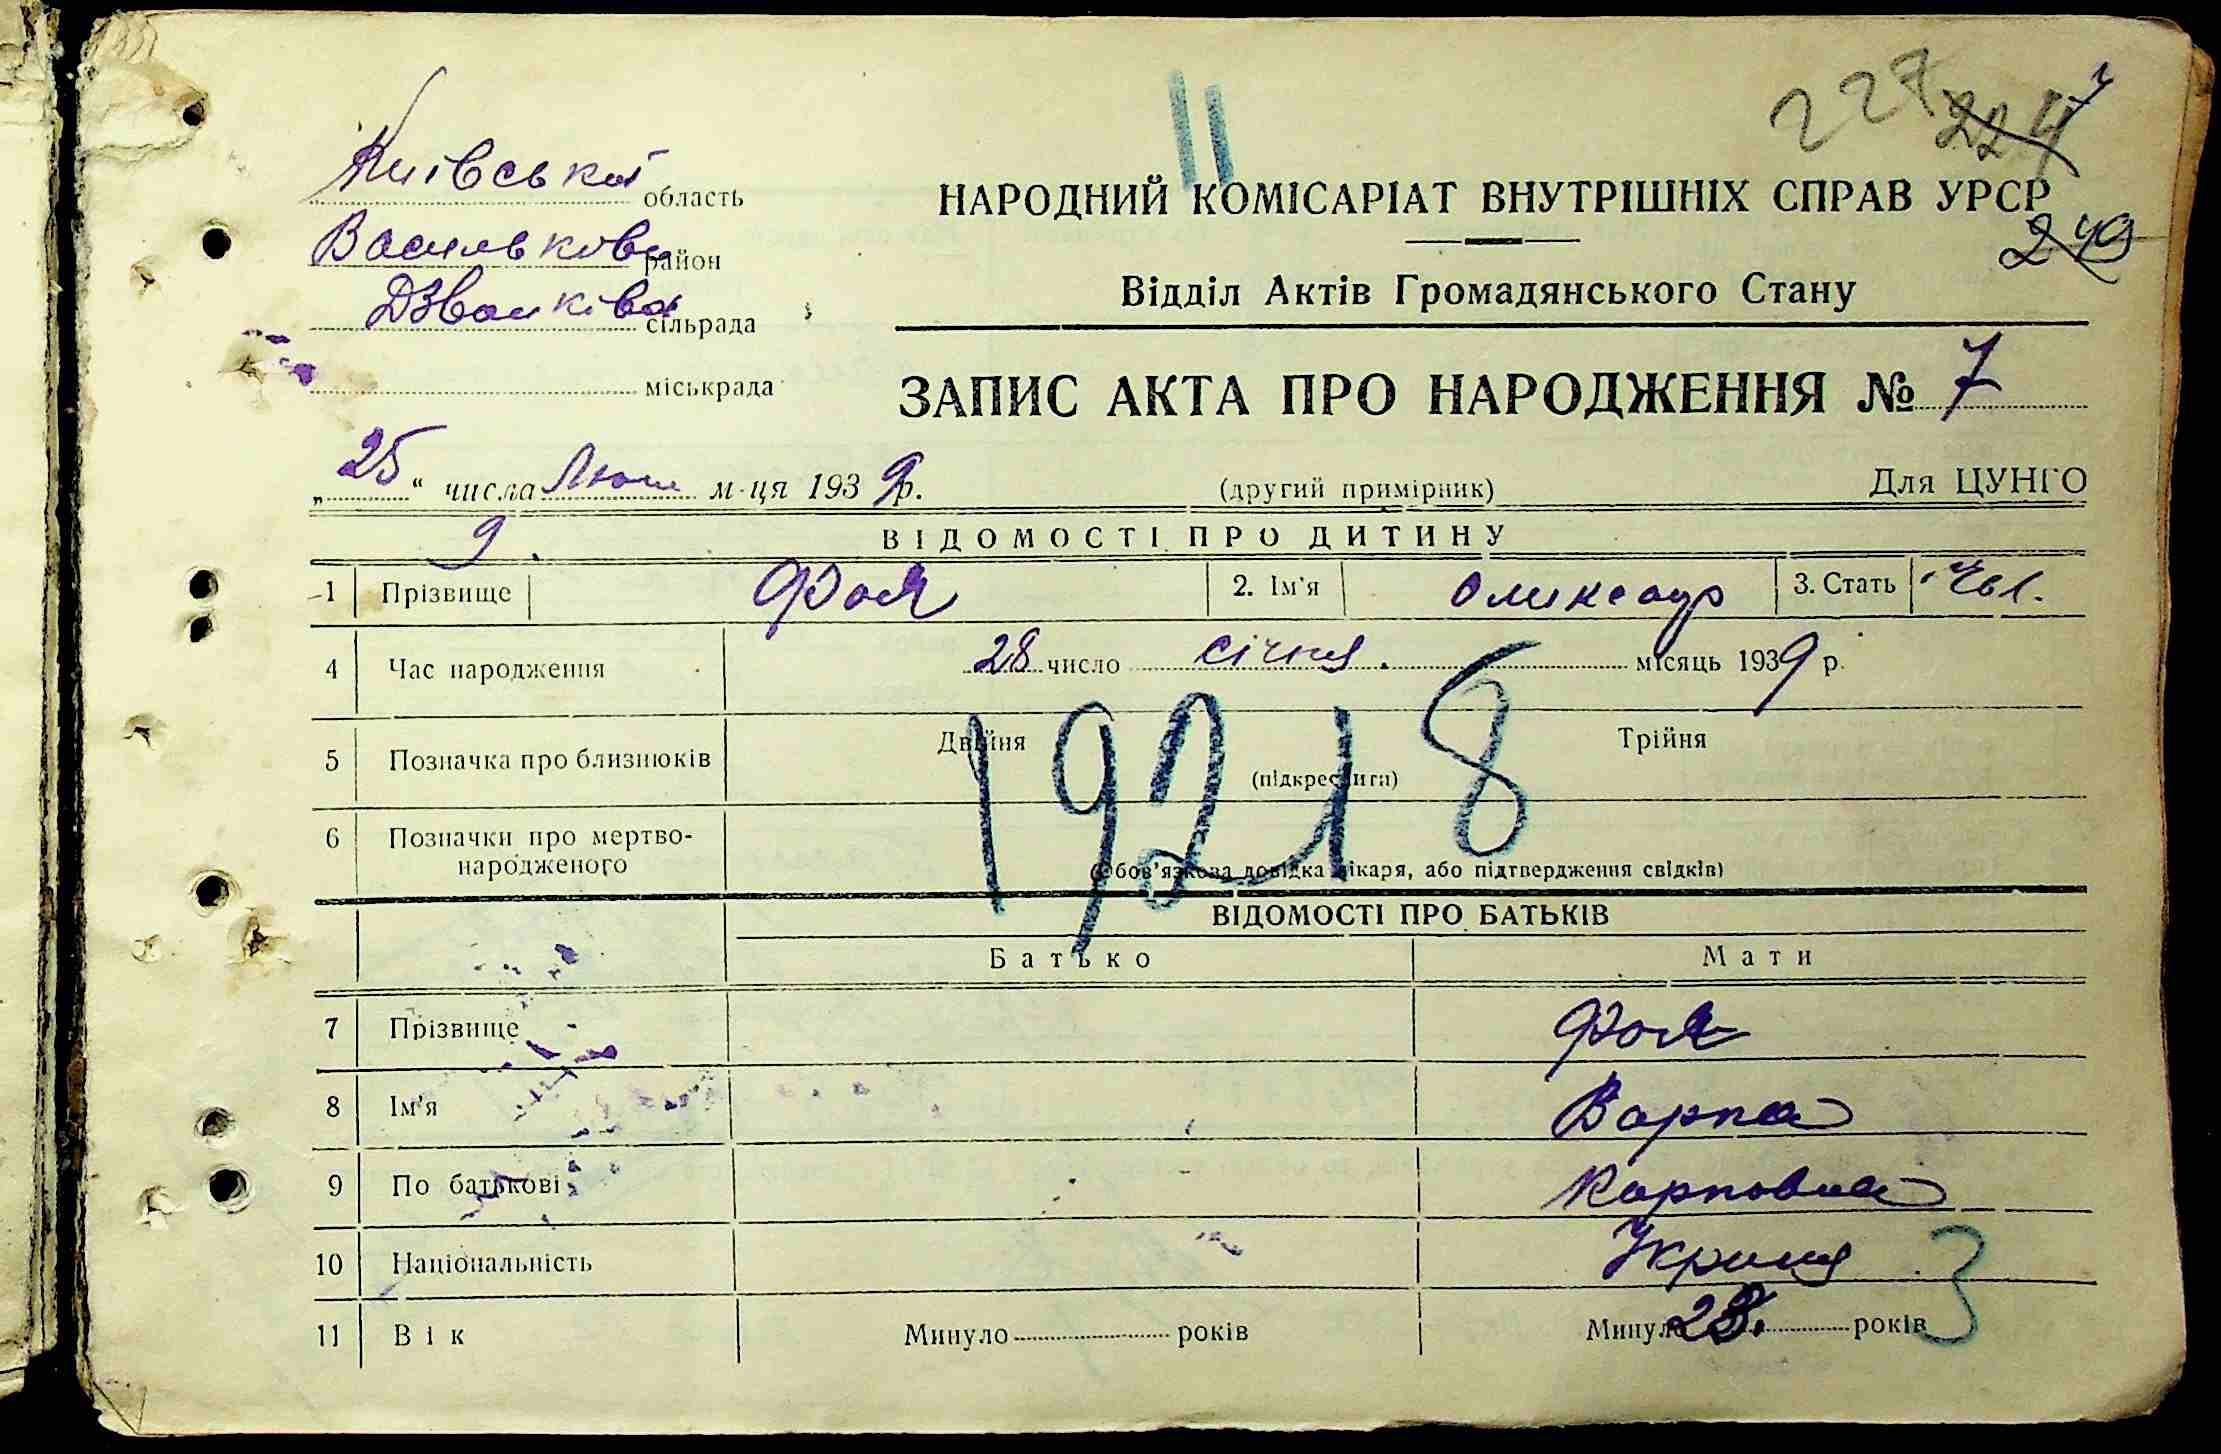 11
227 224
Київської область
НАРОДНИЙ КОМІСАРІАТ ВНУТРІШНІХ СПРАВ УРСР
249
Васильків район
Відділ Актів Громадянського Стану
Дзвінківа сільрада
міськрада
ЗАПИС АКТА ПРО НАРОДЖЕННЯ № 7
„25“ числа Лют м-ця 1939 р. (другий примірник) Для ЦУНГО
9. ВІДОМОСТІ ПРО ДИТИНУ
1 Прізвище Фоя 2. Ім'я Олександр 3. Стать Чол.
4 Час народження 28 число січня. місяць 1939 р.
5 Позначка про близнюків Двійня (підкреслити) Трійня
19218
6 Позначки про мертво-
народженого (обов'язкова довідка лікаря, або підтвердження свідків)
ВІДОМОСТІ ПРО БАТЬКІВ
Батько Мати
7 Прізвище Фоя
8 Ім'я Варка
9 По батькові Карповна
10 Національність 3
11 Вік Минуло років Минуло 28. років